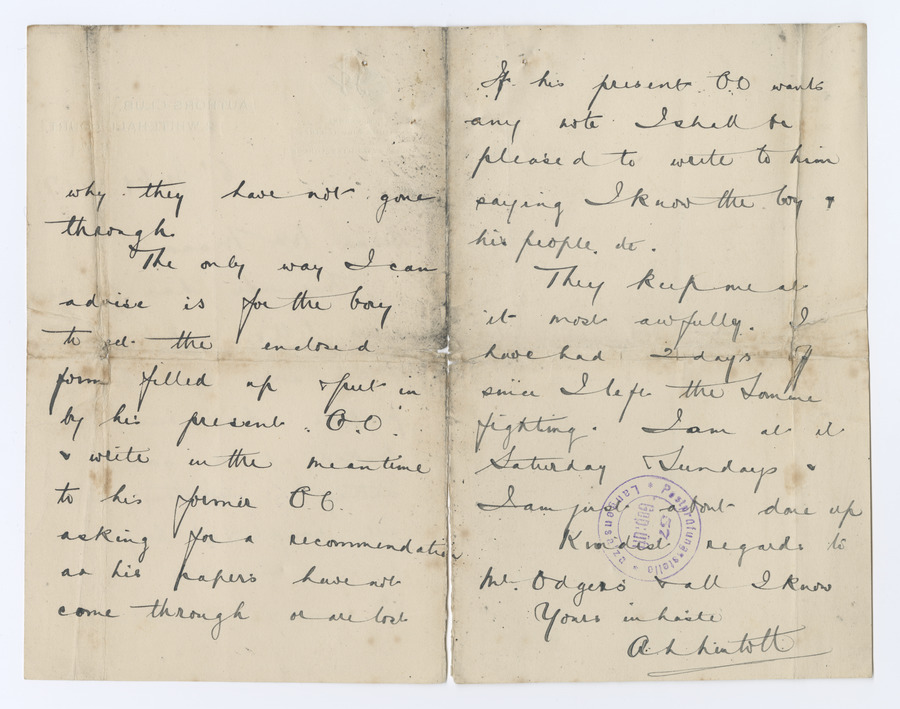 why they have not gone
through.
The only way I can
advise is for the boy
to get the enclosed
form filled up & put in
by his present O.C.
& write in the meantime
to his former O.C.
asking for a recommendation
as his papers have not
come through or are lost
If his present O.C wants
any note I shall be
pleased to write to him
saying I know the boy &
his people do.
They keep me at
it most awfully. I
have had 2 days off
since I left the Somme
fighting. I am at it
Saturday & Sundays &
I am just about done up
Kindest regards to
Mr. Odgers & all I know
Yours in haste
Postprüfungsstelle
Geprüft
57
Langensalza